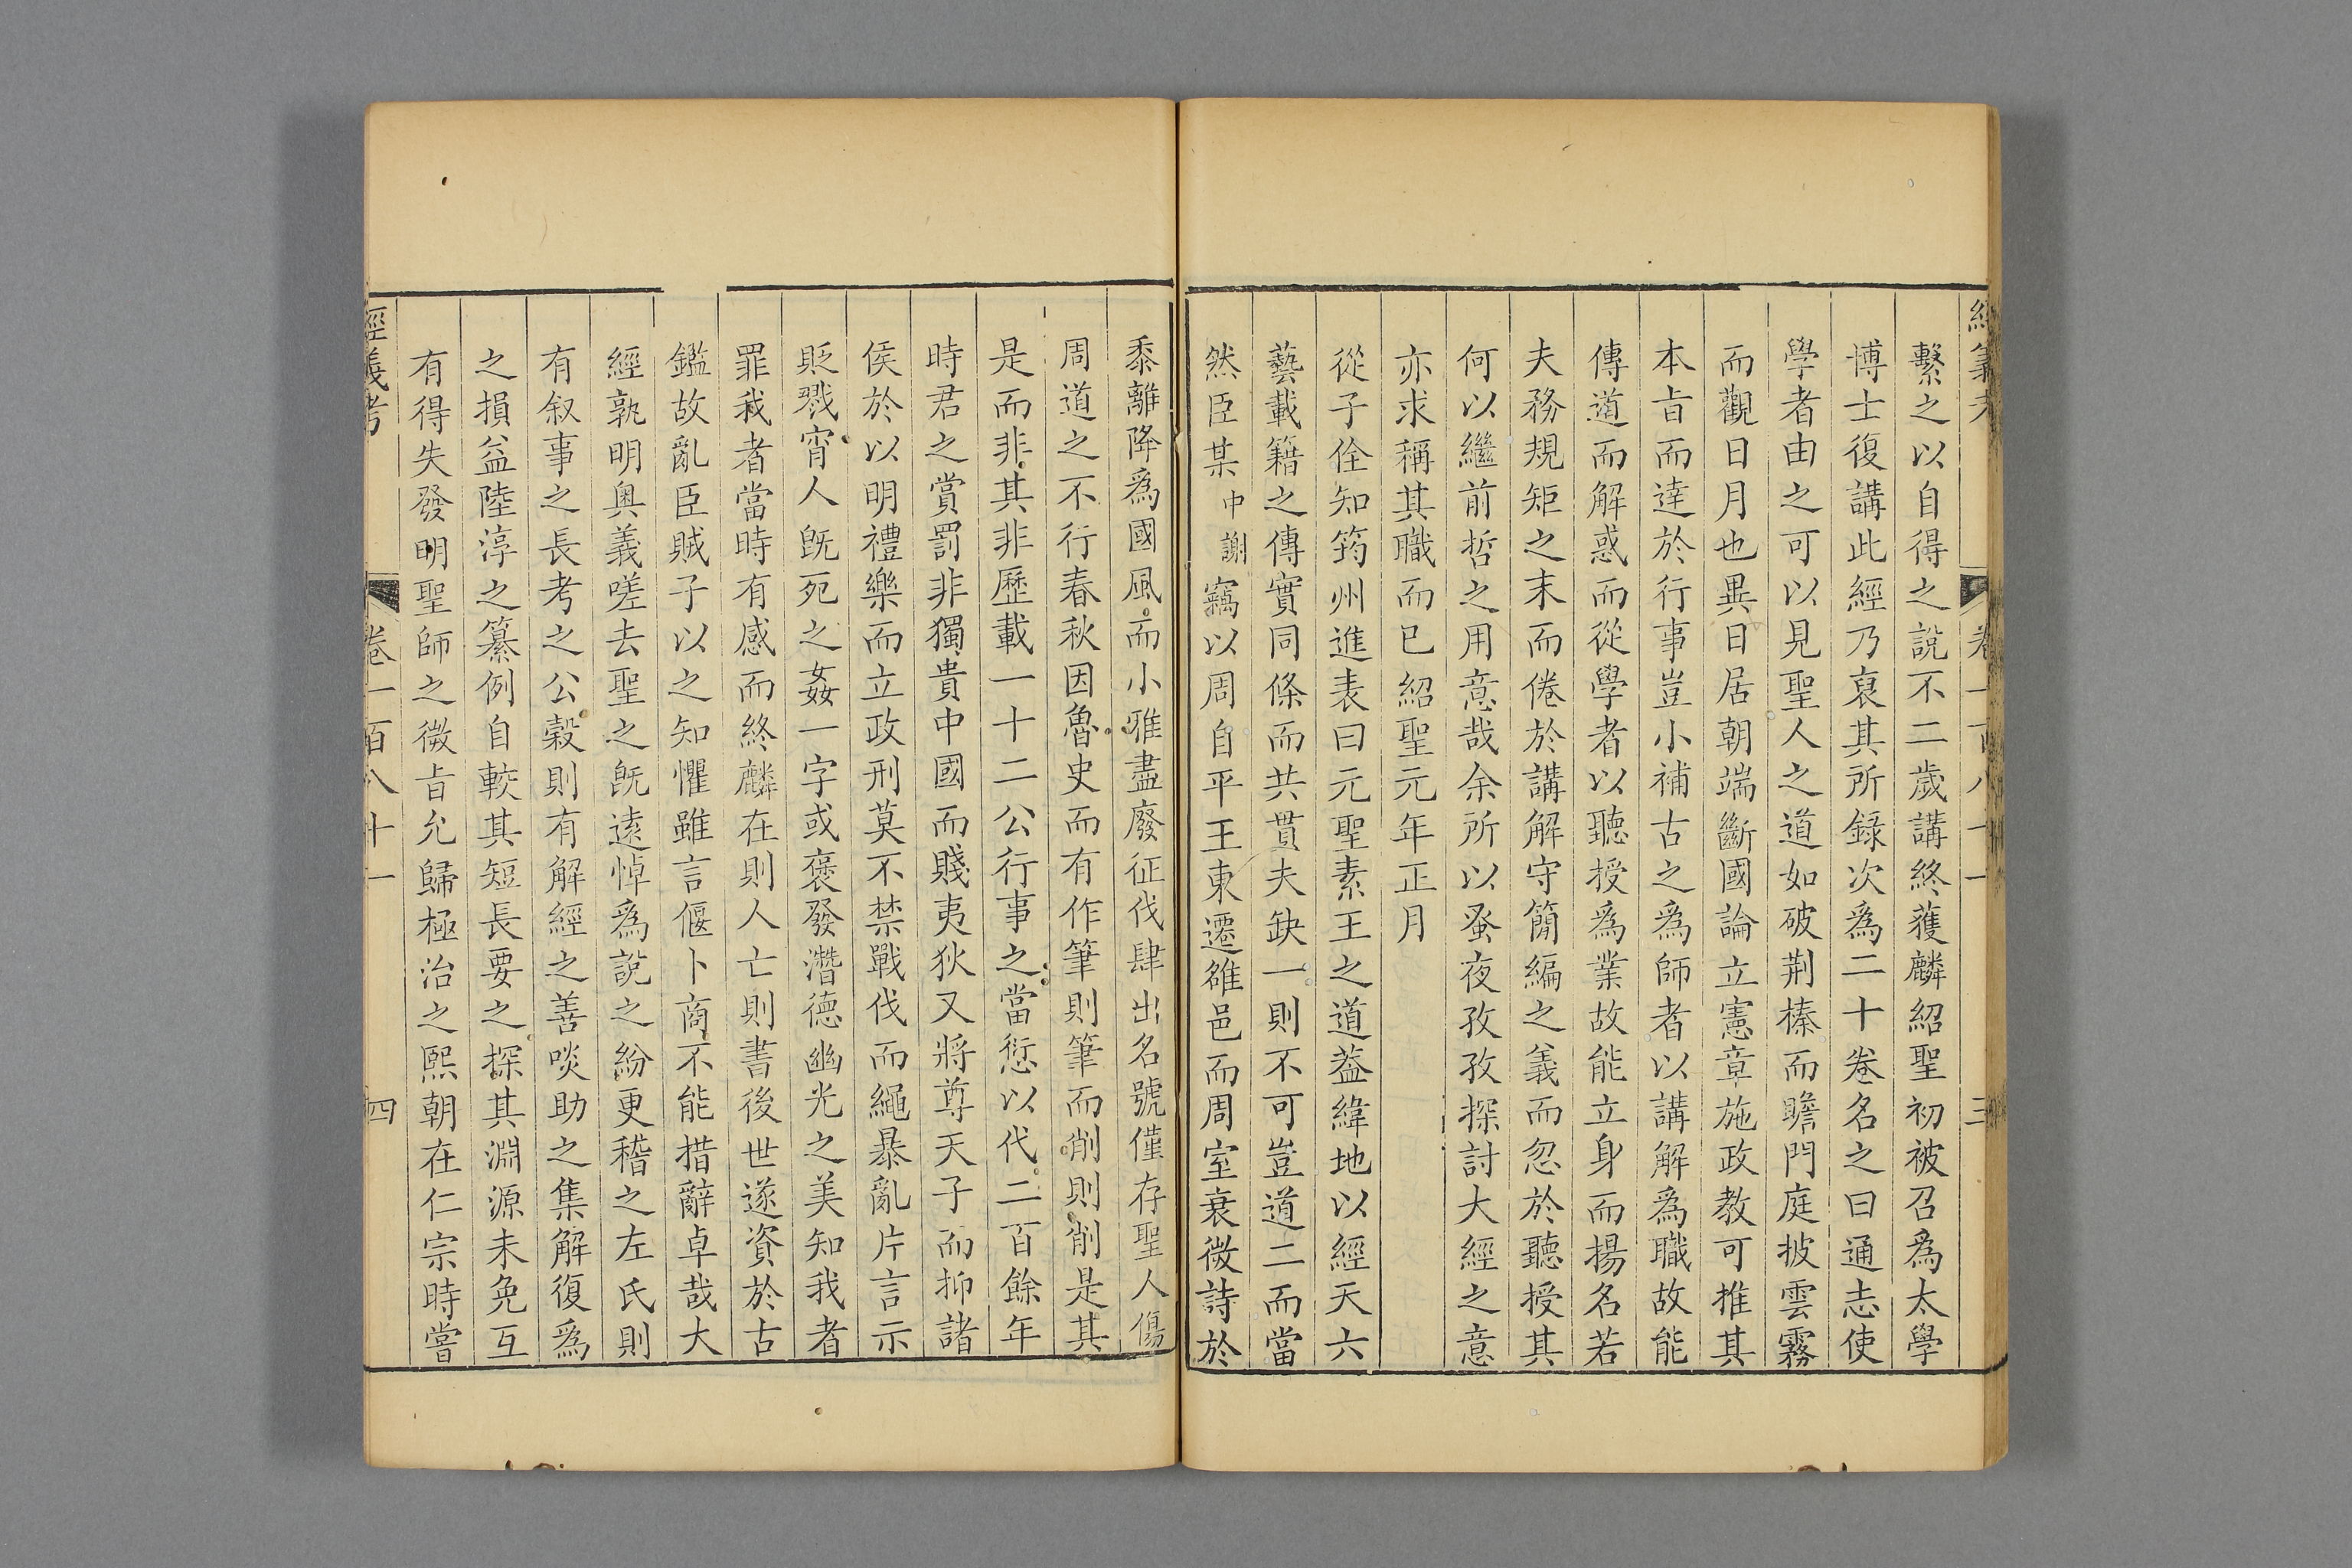 繫之以自得之說不二歲講終獲麟紹聖初被召爲太學
博士復講此經乃裒其所録次爲二十卷名之曰通志使
學者由之可以見聖人之道如破荆榛而瞻門庭披雲霧
而觀日月也異日居朝端斷國論立憲章施政教可推其
本旨而達於行事豈小補古之爲師者以講解爲職故能
傳道而解惑而從學者以聽授爲業故能立身而揚名若
夫務規矩之末而倦於講解守簡編之義而忽於聽授其
何以繼前哲之用意哉余所以蚤夜孜孜探討大經之意
亦求稱其職而已紹聖元年正月
從子佺知筠州進表曰元聖素王之道葢緯地以經天六
藝載籍之傳實同條而共貫夫缺一則不可豈道二而當
然臣某中謝竊以周自平王東遷雒邑而周室衰微詩於
黍離降爲國風而小雅盡廢征伐肆出名號僅存聖人傷
周道之不行春秋因魯史而有作筆則筆而削則削是其
是而非其非歷載一十二公行事之當愆以代二百餘年
時君之賞罰非獨貴中國而賤夷狄又將尊天子而抑諸
侯於以明禮樂而立政刑莫不禁戰伐而繩暴亂片言示
貶戮宵人既死之姦一字或褒發潛德幽光之美知我者
罪我者當時有感而終麟在則人亡則書後世遂資於古
鑑故亂臣賊子以之知懼雖言偃卜商不能措辭卓哉大
經孰明奥義嗟去聖之既遠悼爲說之紛更稽之左氏則
有叙事之長考之公穀則有解經之善啖助之集解復爲
之損益陸淳之纂例自較其短長要之探其淵源未免互
有得失發明聖師之微旨允歸極治之熙朝在仁宗時嘗
經義考 卷一百八十一 四